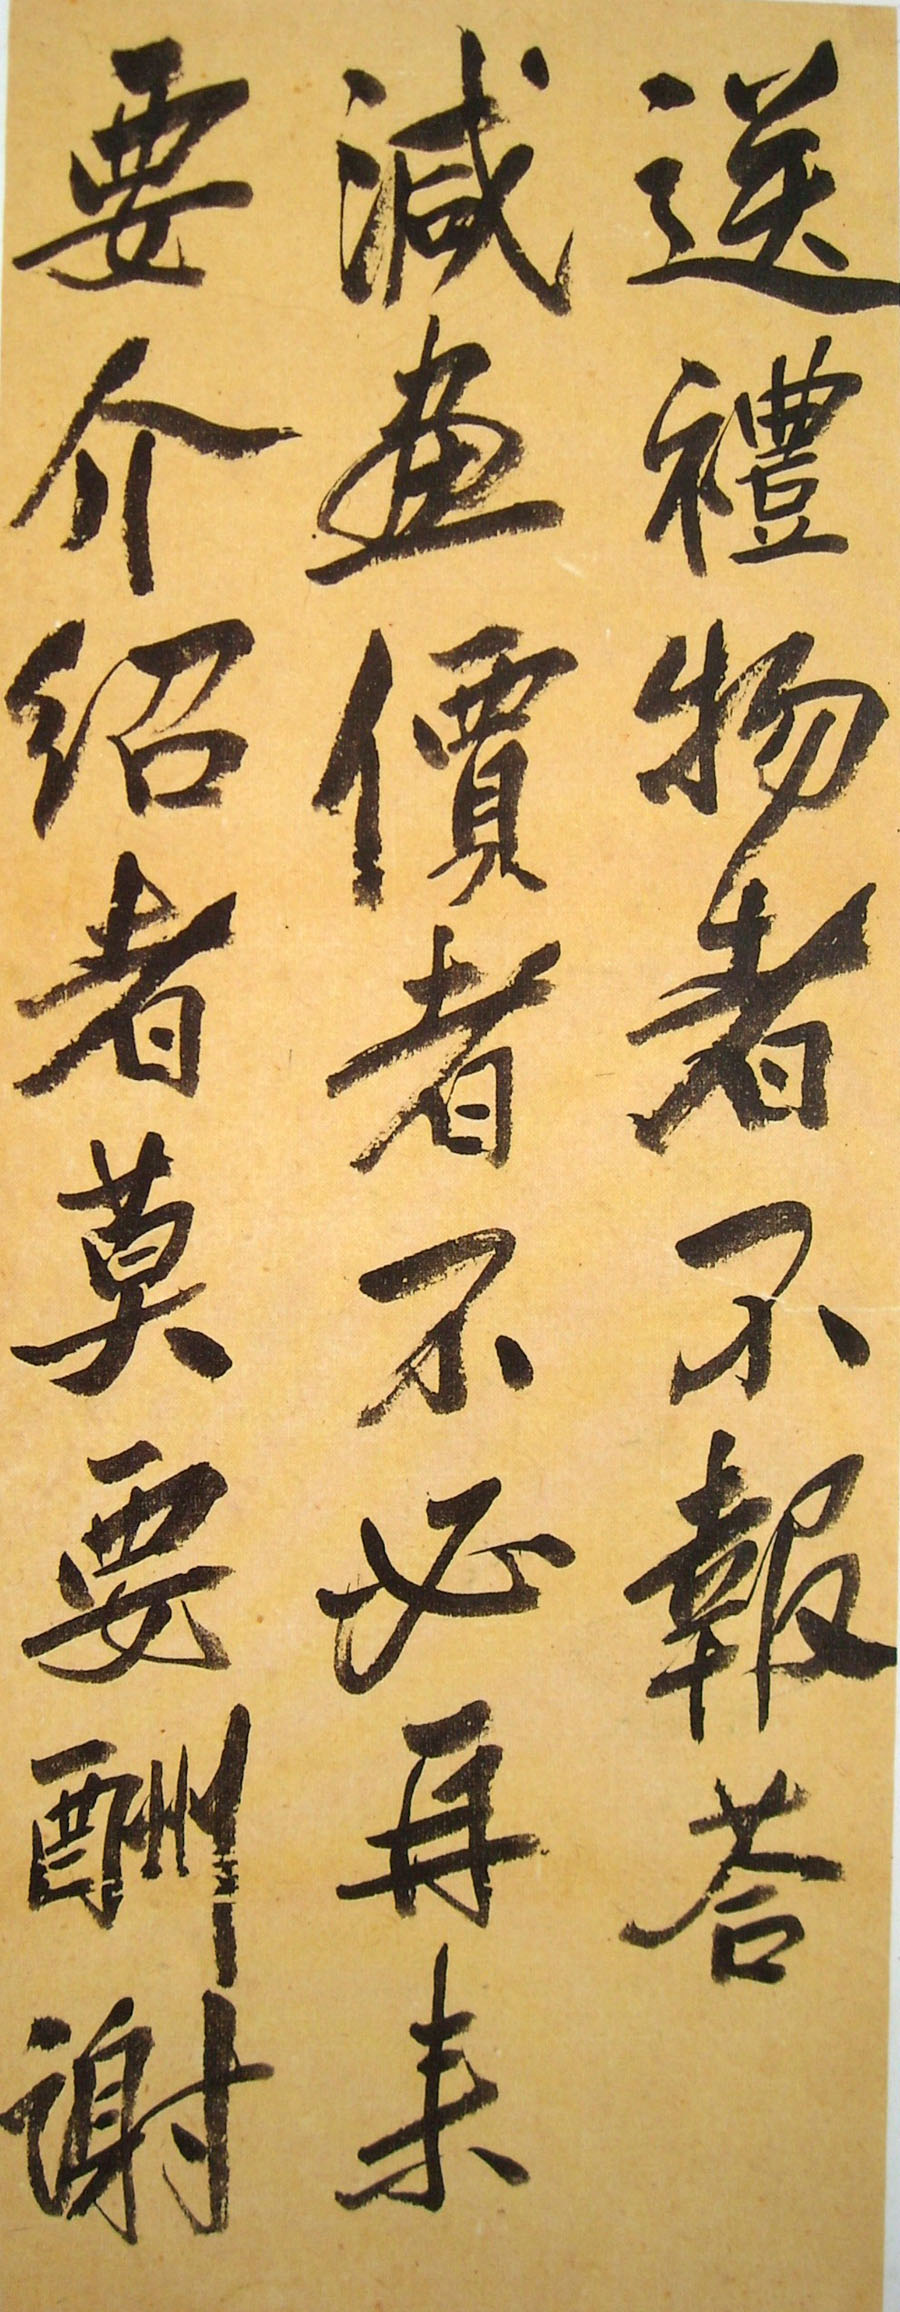 送禮物者不報荅
減畫價者不必再来
要介紹者莫要酬謝